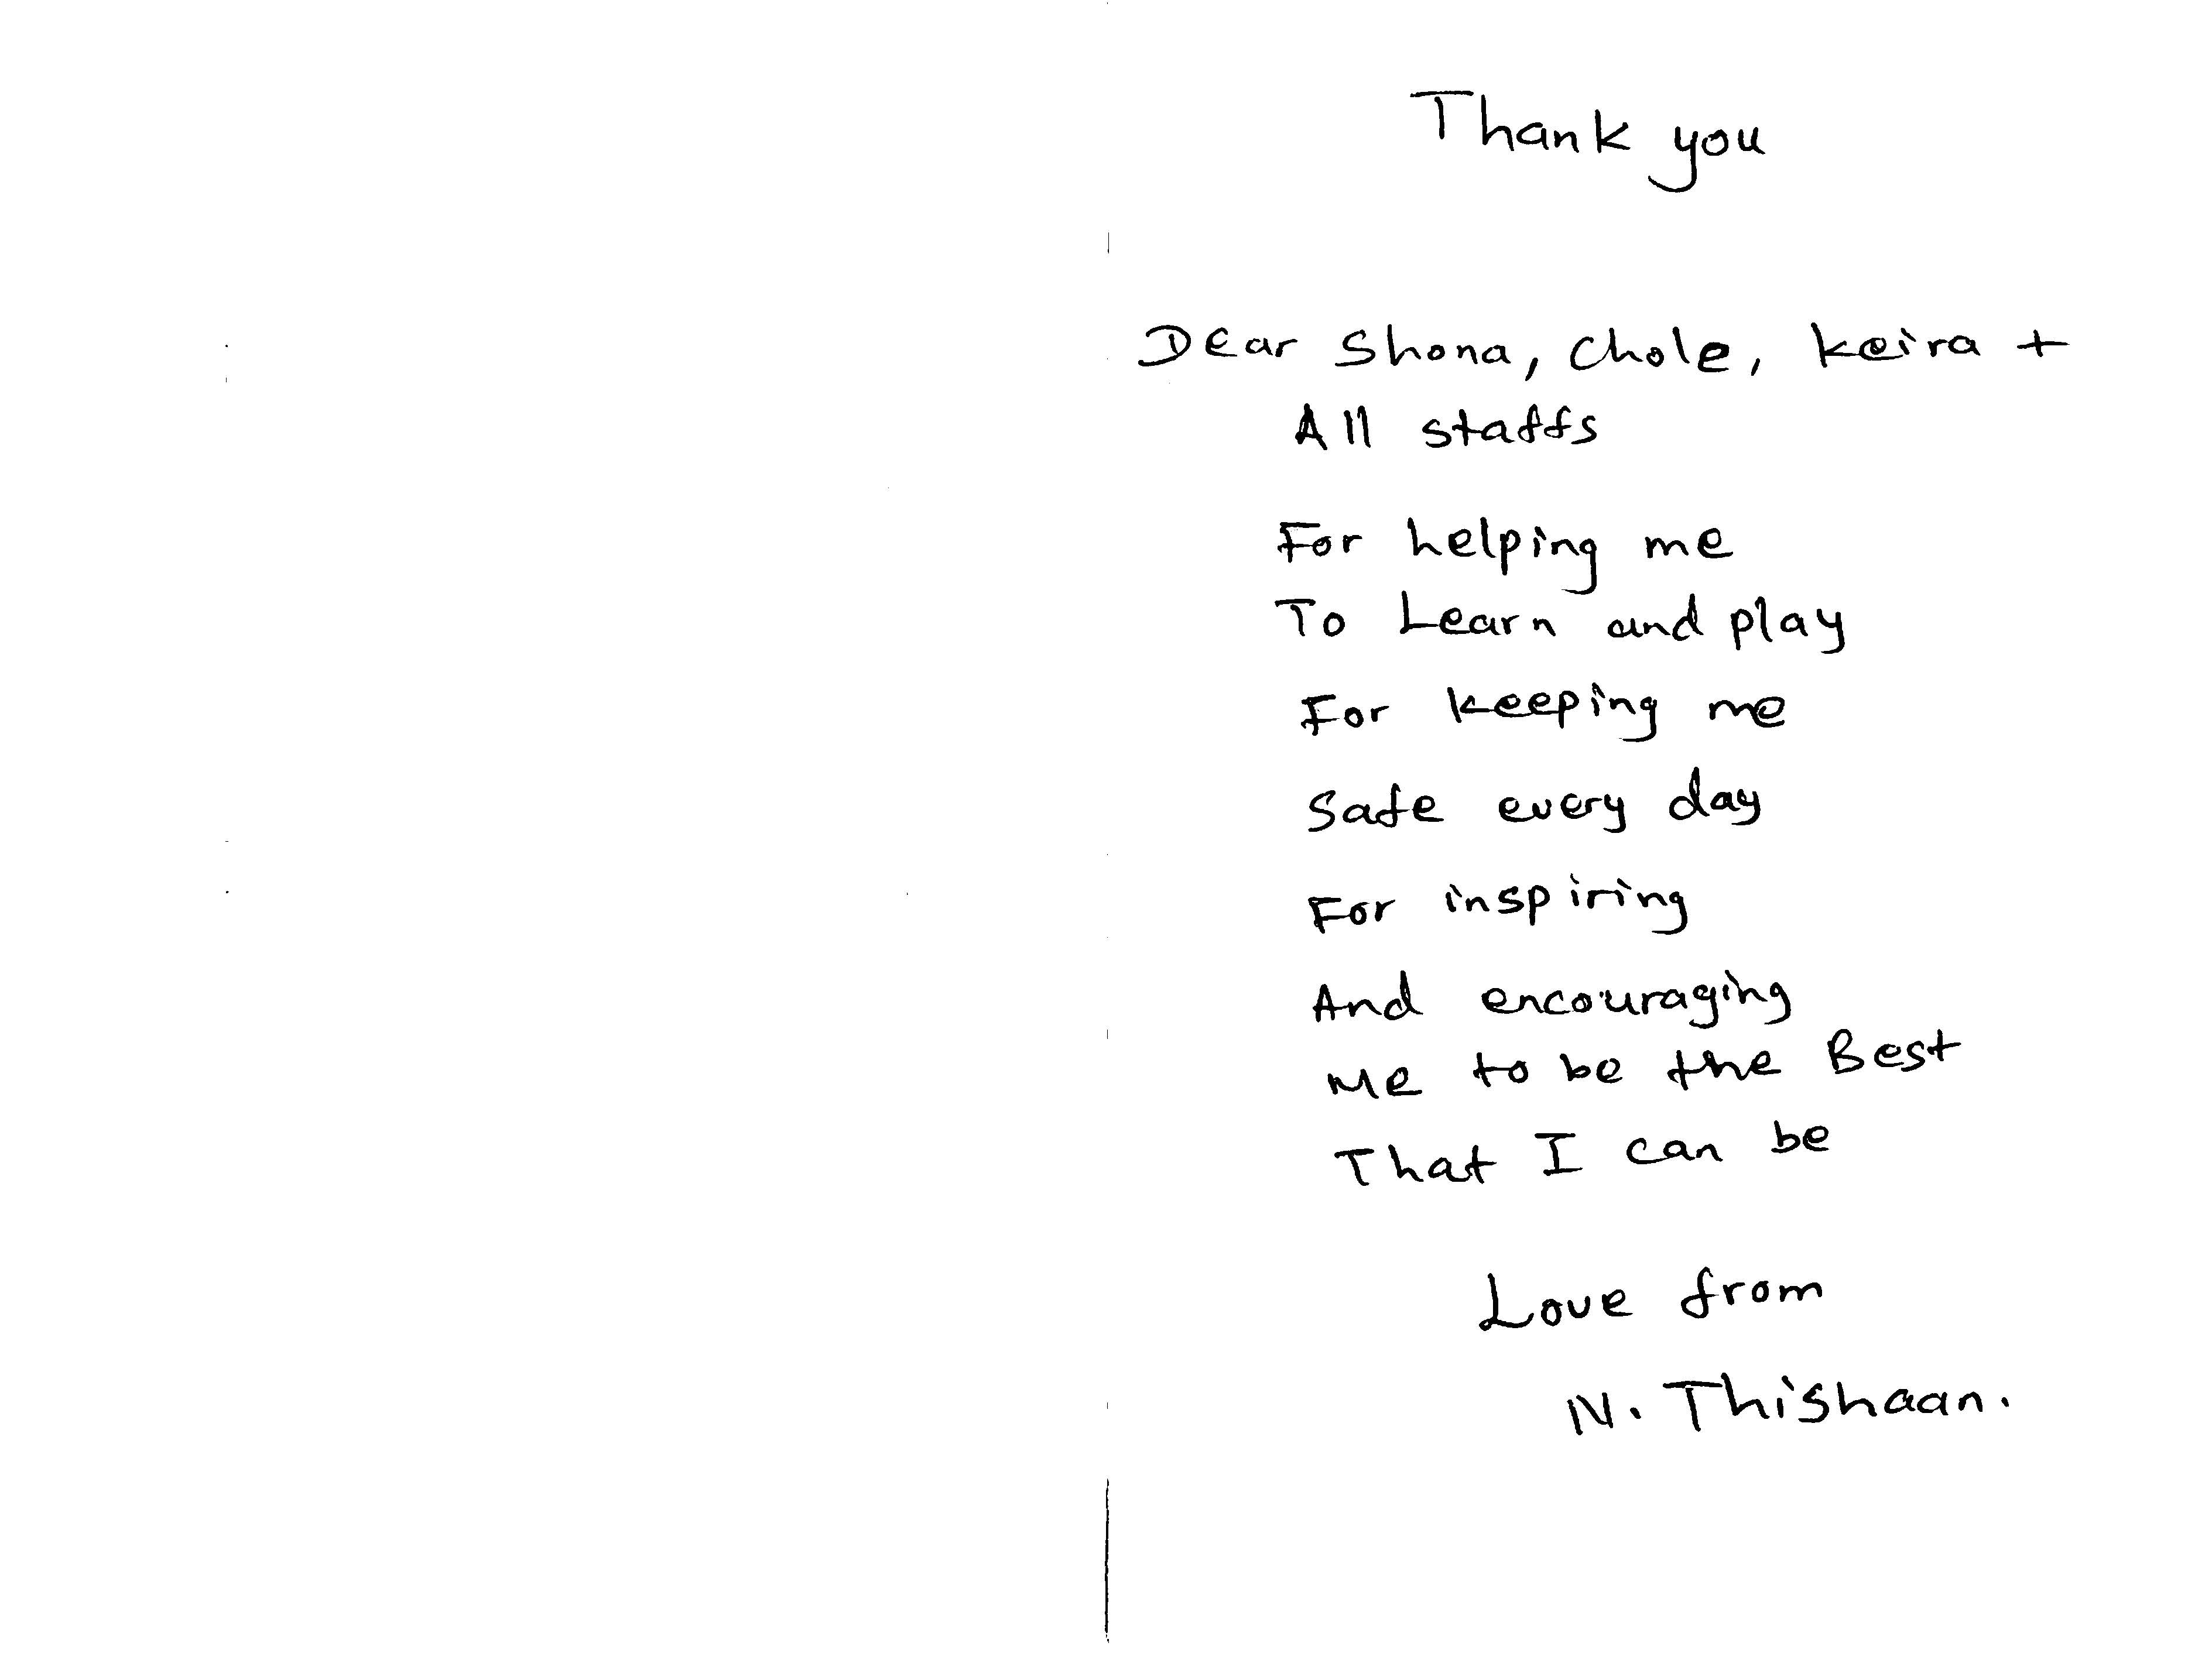 Thank you
Dear Shona, Chole, Keira +
All staffs
For helping me
To Learn and play
For keeping me
Safe every day
For inspiring
And encouraging
Me to be the Best
That I can be
Love from
N. Thishaan.